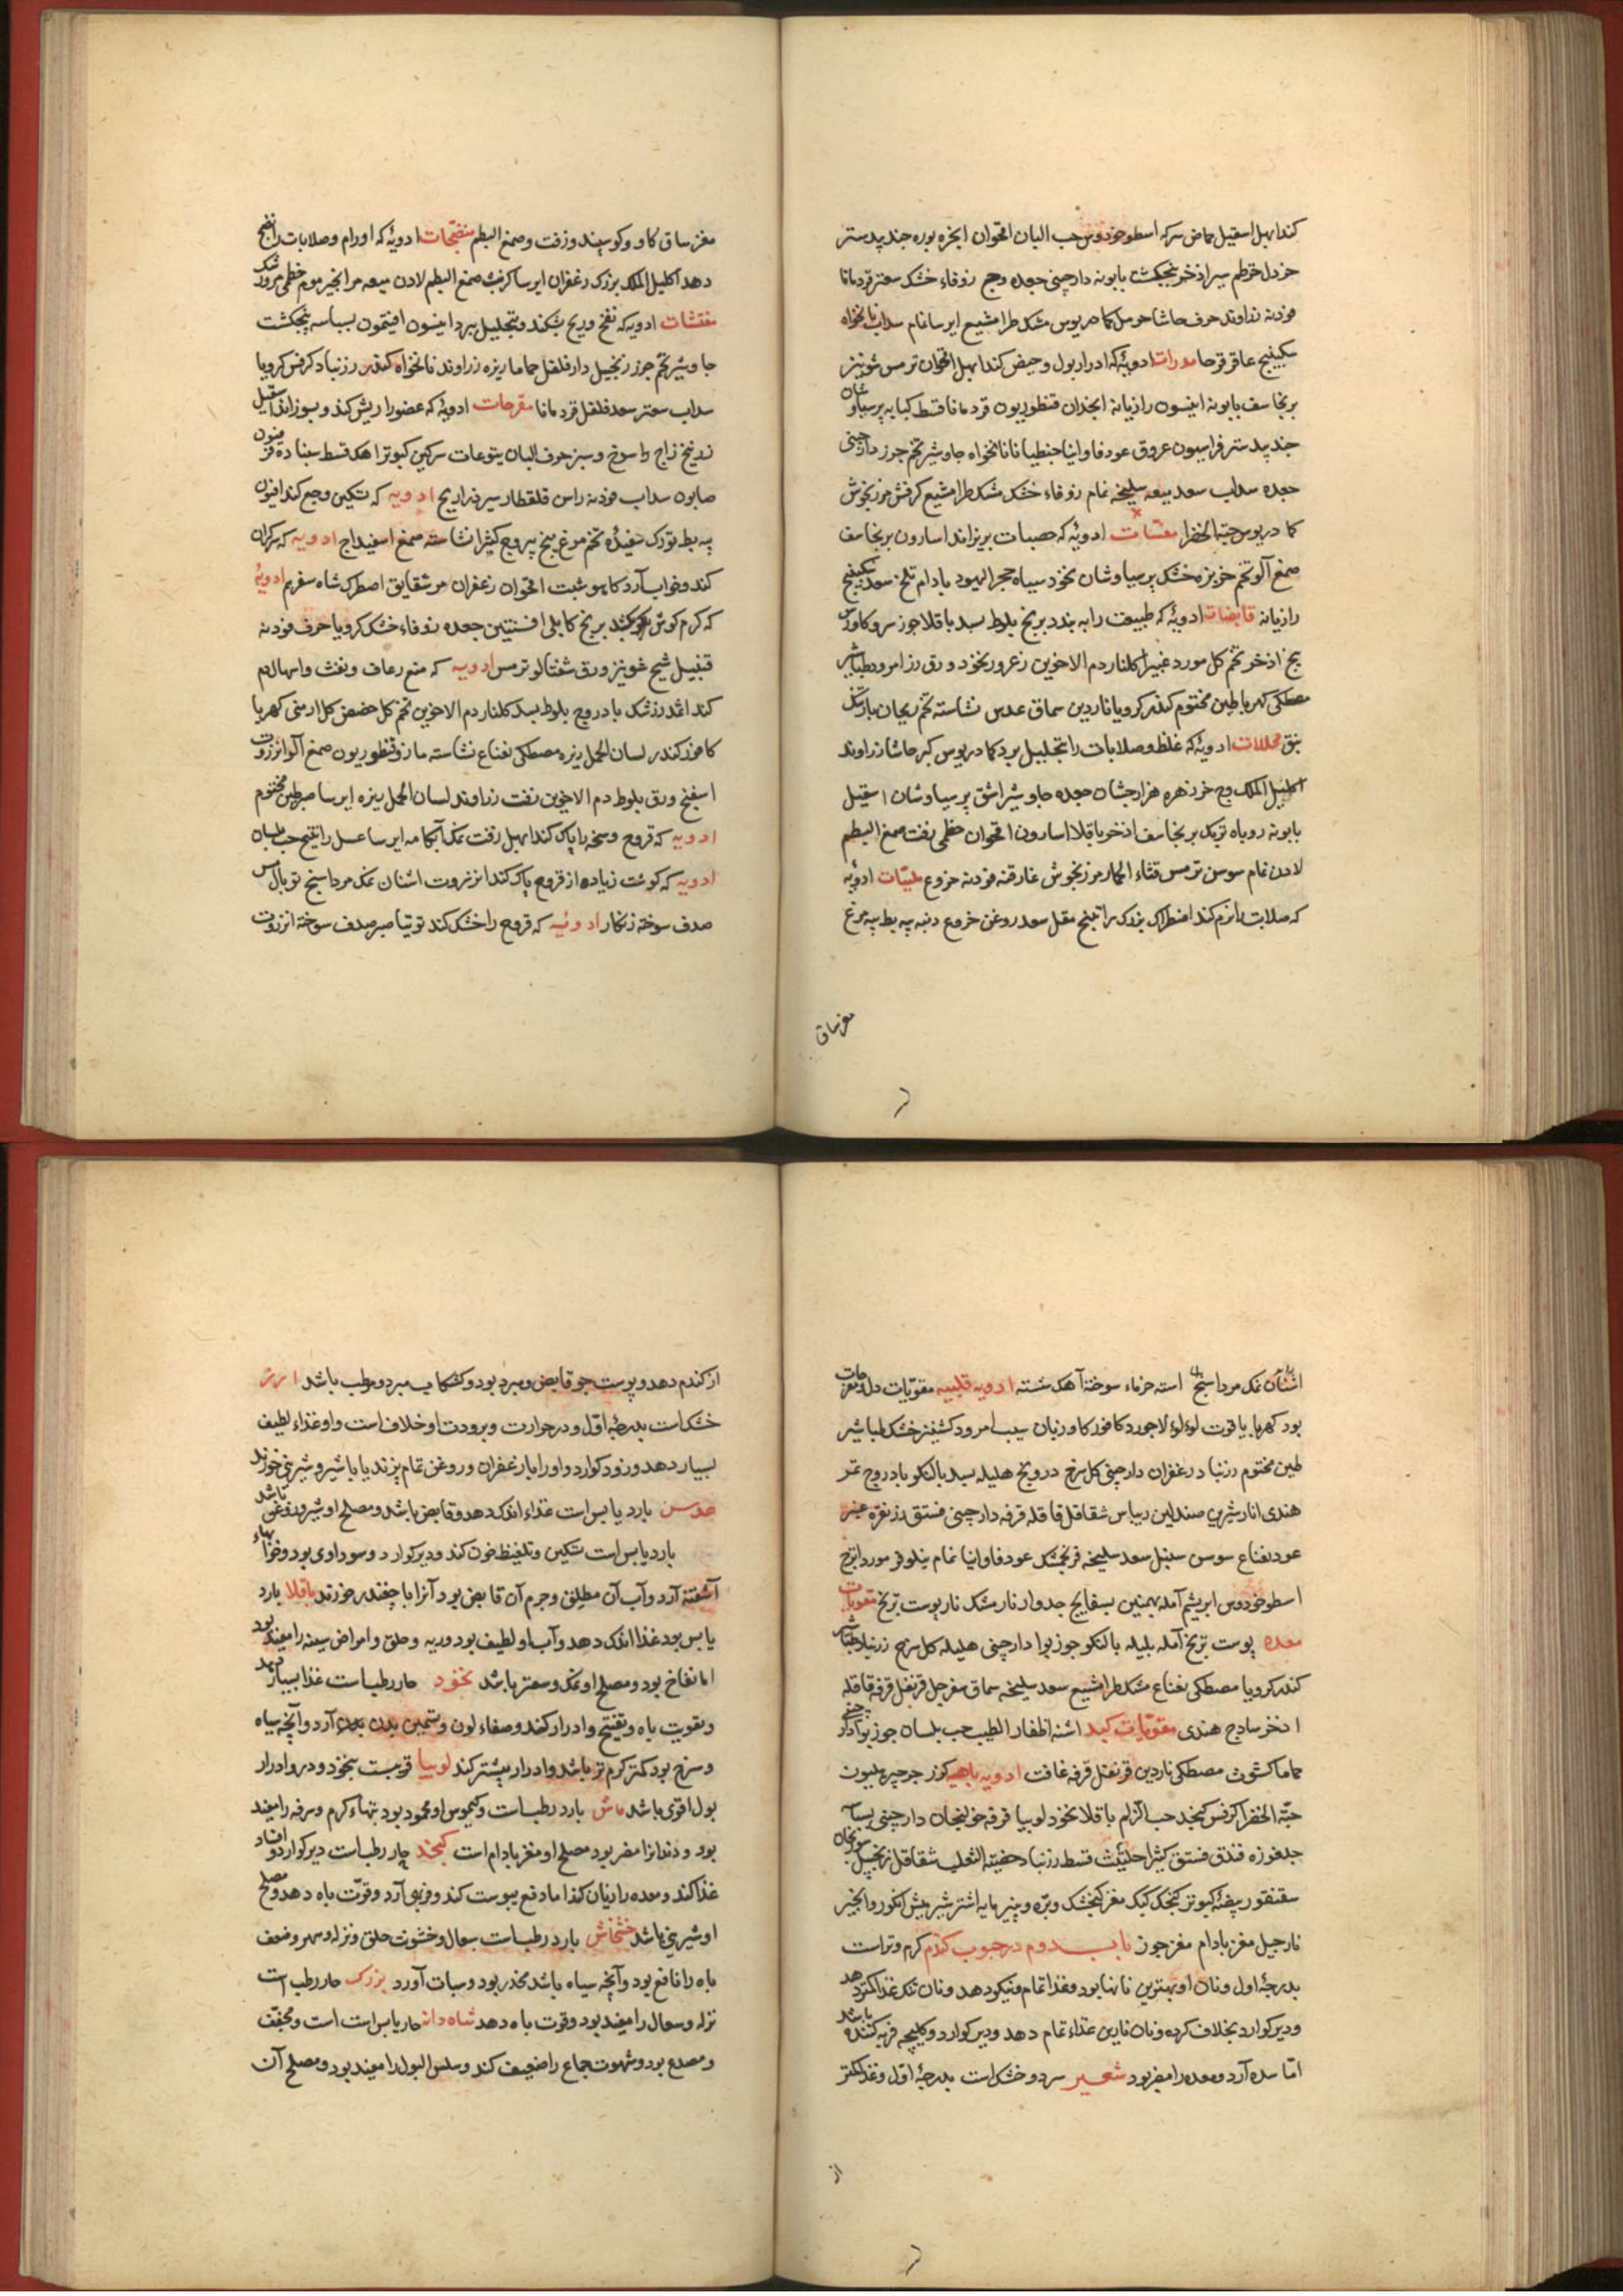 کند ابهل اسقیل حماض سرکه اسطوخودوس حب البان اقحوان انجره بوره جندبیدستر
خردل قرطم سیر اذخر پنجنکشت بابونه دارچینی جعده وج زوفاء خشک سعتر قردمانا
فودنه زراوند حرف حاشا حرمل کمادریوس مشکطرامشیع ایرسا نمام سداب نانخواه
سکبینج عاقرقرحا مدرات ادویهٔ که ادرار بول و حیض کند ابهل اقحوان ترمس شونیز
برنجاسف بابونه انیسون رازیانه انجدان قنطوریون قردمانا قسط کبابه پرسیاوشان
جندبیدستر فراسیون عروق عود فاوانیا جنطیانا نانخواه جاوشیر تخم جزر دارچینی
جعده سداب سعد میعه سلیخه نمام زوفاء خشک مشکطرامشیع کرفس مرزنجوش
کمادریوس حبة الخضرا مفتتات ادویهٔ که حصیات بریزاند اسارون برنجاسف
صمغ آلو تخم خربزه خشک پرسیاوشان نخود سیاه حجرالیهود بادام تلخ سعد سکبینج
رازیانه قابضات ادویهٔ که طبیعت را به بندد برنج بلوط بسد باقلا جوز سرو کاورس
بیخ اذخر تخم کل مورد غبیرا کلنار دم الاخوین زعرور نخود ورق رز امرود طباشیر
مصطکی کهربا طین مختوم کندر کرویا ناردین سماق عدس نشاسته تخم ریحان بارتنک
نبق محللات ادویهٔ که غلظ و صلابات را بتحلیل برد کمادریوس کبر حاشا زراوند
اکلیل الملک وج خرزهره هزارجشان جعده جاوشیر اشق پرسیاوشان اسقیل
بابونه روباه تربک برنجاسف اذخر باقلا اسارون اقحوان خطمی نفت صمغ البطم
لادن نمام سوسن ترمس قثاء الحمار مرزنجوش غارقنه فودنه خروع ملینات ادویه
که صلابت را نرم کند اصطرک بزرک راتینج مقل سعد روغن خروع دنبه پیه بط پیه مرغ
مغز ساق
مغز ساق کاو و کوسپند و زفت و صمغ البطم منضجات ادویهٔ که اورام و صلابات را نضج
دهد اکلیل الملک بزرک زعفران ایرسا کرنب صمغ البطم لادن میعه مر انجیر موم خطمی مرو
منفشات ادویه که نفخ و ریح بشکند و بتحلیل برد انیسون افتیمون بسباسه پنجنکشت
جاوشیر تخم جزر زنجبیل دارفلفل حماما ریزه زراوند نانخواه کندر زرنباد کرفس کرویا
سداب سعتر سعد فلفل قردمانا مقرحات ادویهٔ که عضو را ریش کند و بسوزاند اسقیل
زرنیخ زاج راسوخ و سیر حرف البان یتوعات سرکین کبوتر اهک قسط سبناده فرفیون
صابون سداب فودنه راس قلقطار سیر ذراریح ادویه که تسکین وجع کند افیون
پیه بط تورک سفیدهٔ تخم مرغ بیخ یبروج کثیرا نشاسته صمغ اسفیداج ادویه که کران
کند و خواب آرد کاهو شبت اقحوان زعفران مر شقایق اصطرک شاه سفرم ادویهٔ
که کرم کوش بکشد برنج کابلی افسنتین جعده زوفاء خشک کرویا حرف فودنه
قنبیل شیح شونیز ورق شفتالو ترمس ادویه که منع رعاف و نفث و اسهال دم
کند اثمد زرشک بادروج بلوط بسد کلنار دم الاخوین تخم کل حضض کل ارمنی کهربا
کافور کندر لسان الحمل ریزه مصطکی نعناع نشاسته مازو قنطوریون صمغ آلو انزروت
اسفنج ورق بلوط دم الاخوین زفت زراوند لسان الحمل ریزه ایرسا صبر طین مختوم
ادویه که قروح وسخه را پاک کند ابهل زفت نمک آبکامه ایرسا عسل راتینج حب بلسان
ادویه که کوشت زیاده از قروح پاک کند انزروت اشنان نمک مرداسنج توبال مس
صدف سوخته زنکار ادوئیه که قروح را خشک کند توتیا صبر صدف سوخته انزروت
اشنان نمک مرداسنج استه خرماء سوخته آهک شسته ادویه قلبیه مقویات دل و مفرحات
بود کهربا یاقوت لوءلوء لاجورد کافور کاوزبان سیب امرود کشنیز خشک طباشیر
طین مختوم زرنباد زعفران دارچینی کل سرخ درونج هلیله بسد بالنکو بادروج تمر
هندی انار شیرین صندلین ریباس شقاقل قاقله قرفه دارچینی فستق زر نقره عنبر
عود نعناع سوسن سنبل سعد سلیخه فرنجمشک عود فاوانیا نمام نیلوفر مورد اترج
اسطوخودوس ابریشم آمله بهمنین بسفایج جدوار نارمشک نار پوست ترنج مقویات
معده پوست ترنج آمله بلیله بالنکو جوز بوا دارچینی هلیله کل سرخ زرنباد طباشیر
کندر کرویا مصطکی نعناع مشکطرامشیع سعد سلیخه سماق سفرجل قرنفل قرفه قاقله
اذخر ساذج هندی مقویات کبد اشنه اظفار الطیب حب بلسان جوز بوا دارچینی
حماما کشوث مصطکی ناردین قرنفل قرفه غافت ادویه باهیه کزر جرجیر هلیون
حبة الخضرا کرفس کنجد حب الزلم باقلا نخود لوبیا قرفه خولنجان دارچینی بسباسه
جلغوزه فندق فستق کثیرا حلتیث قسط زرنباد خصیة الثعلب شقاقل زنجبیل سورنجان
سقنقور بیضهٔ کبوتر کنجشک کبک مغز کنجشک و بره و پنیر مایه اشتر شیر میش انکور و انجیر
نارجیل مغز بادام مغز جوز باب دوم در حبوب کندم کرم و تر است
بدرجهٔ اول و نان او بهترین نانها بود و غذا تمام و نیکو دهد و نان تنک غذا کمتر دهد
و دیر کوارد بخلاف کرده و نان نازین غذاء تمام دهد و دیر کوارد و کلیچه فربه کننده باشد
اما سده آرد و معده را مضر بود شعیر سرد و خشک است بدرجهٔ اول و غذا کمتر
از
از کندم دهد و پوست جو قابض و مبرد بود و کشکاب مبرد و مرطب باشد ارز
خشک است بدرجهٔ اول و در حرارت و برودت او خلاف است و او غذاء لطیف
بسیار دهد و زود کوارد و او را با زعفران و روغن تمام پزند یا با شیر و شیرینی خورند
عدس بارد یابس است غذاء اندک دهد و قابض باشد و مصلح او شیر و روغن باشد
بارد یابس است تسکین و تغلیظ خون کند و دیر کوارد و سوداوی بود و خوابهاء
آشفته آرد و آب آن مطلق و جرم آن قابض بود آنرا با چغندر خورند باقلا بارد
یابس بود غذا اندک دهد و آب او لطیف بود و ریه و حلق و امراض سینه را مفید بود
اما نفاخ بود و مصلح او نمک و سعتر باشد نخود حار رطب است غذا بسیار دهد
و تقویت باه و تفتیح و ادرار کند و صفاء لون و تسمین بدن آرد و آنچه سیاه
و سرخ بود کمتر کرم تر باشد و ادرار بیشتر کند لوبیا قریب است بنخود و در ادرار
بول اقوی باشد ماش بارد رطب است و کیموس او محمود بود تبهاء کرم و سرفه را مفید
بود و دندانرا مضر بود مصلح او مغز بادام است کنجد حار رطب است دیر کوارد و افساد
غذا کند و معده را زیان کند اما دفع یبوست کند و فربهی آرد و قوت باه دهد و مصلح
او شیرینی باشد خشخاش بارد رطب است سعال و خشونت حلق و نزله و سهر و ضعف
باه را نافع بود و آنچه سیاه باشد مخدر بود و سبات آورد بزرک حار رطب است
نزله و سعال را مفید بود و قوت باه دهد شاه دانه حار یابس است است و مجفف
و مصدع بود و شهوت جماع را ضعیف کند و سلس البول را مفید بود و مصلح آن